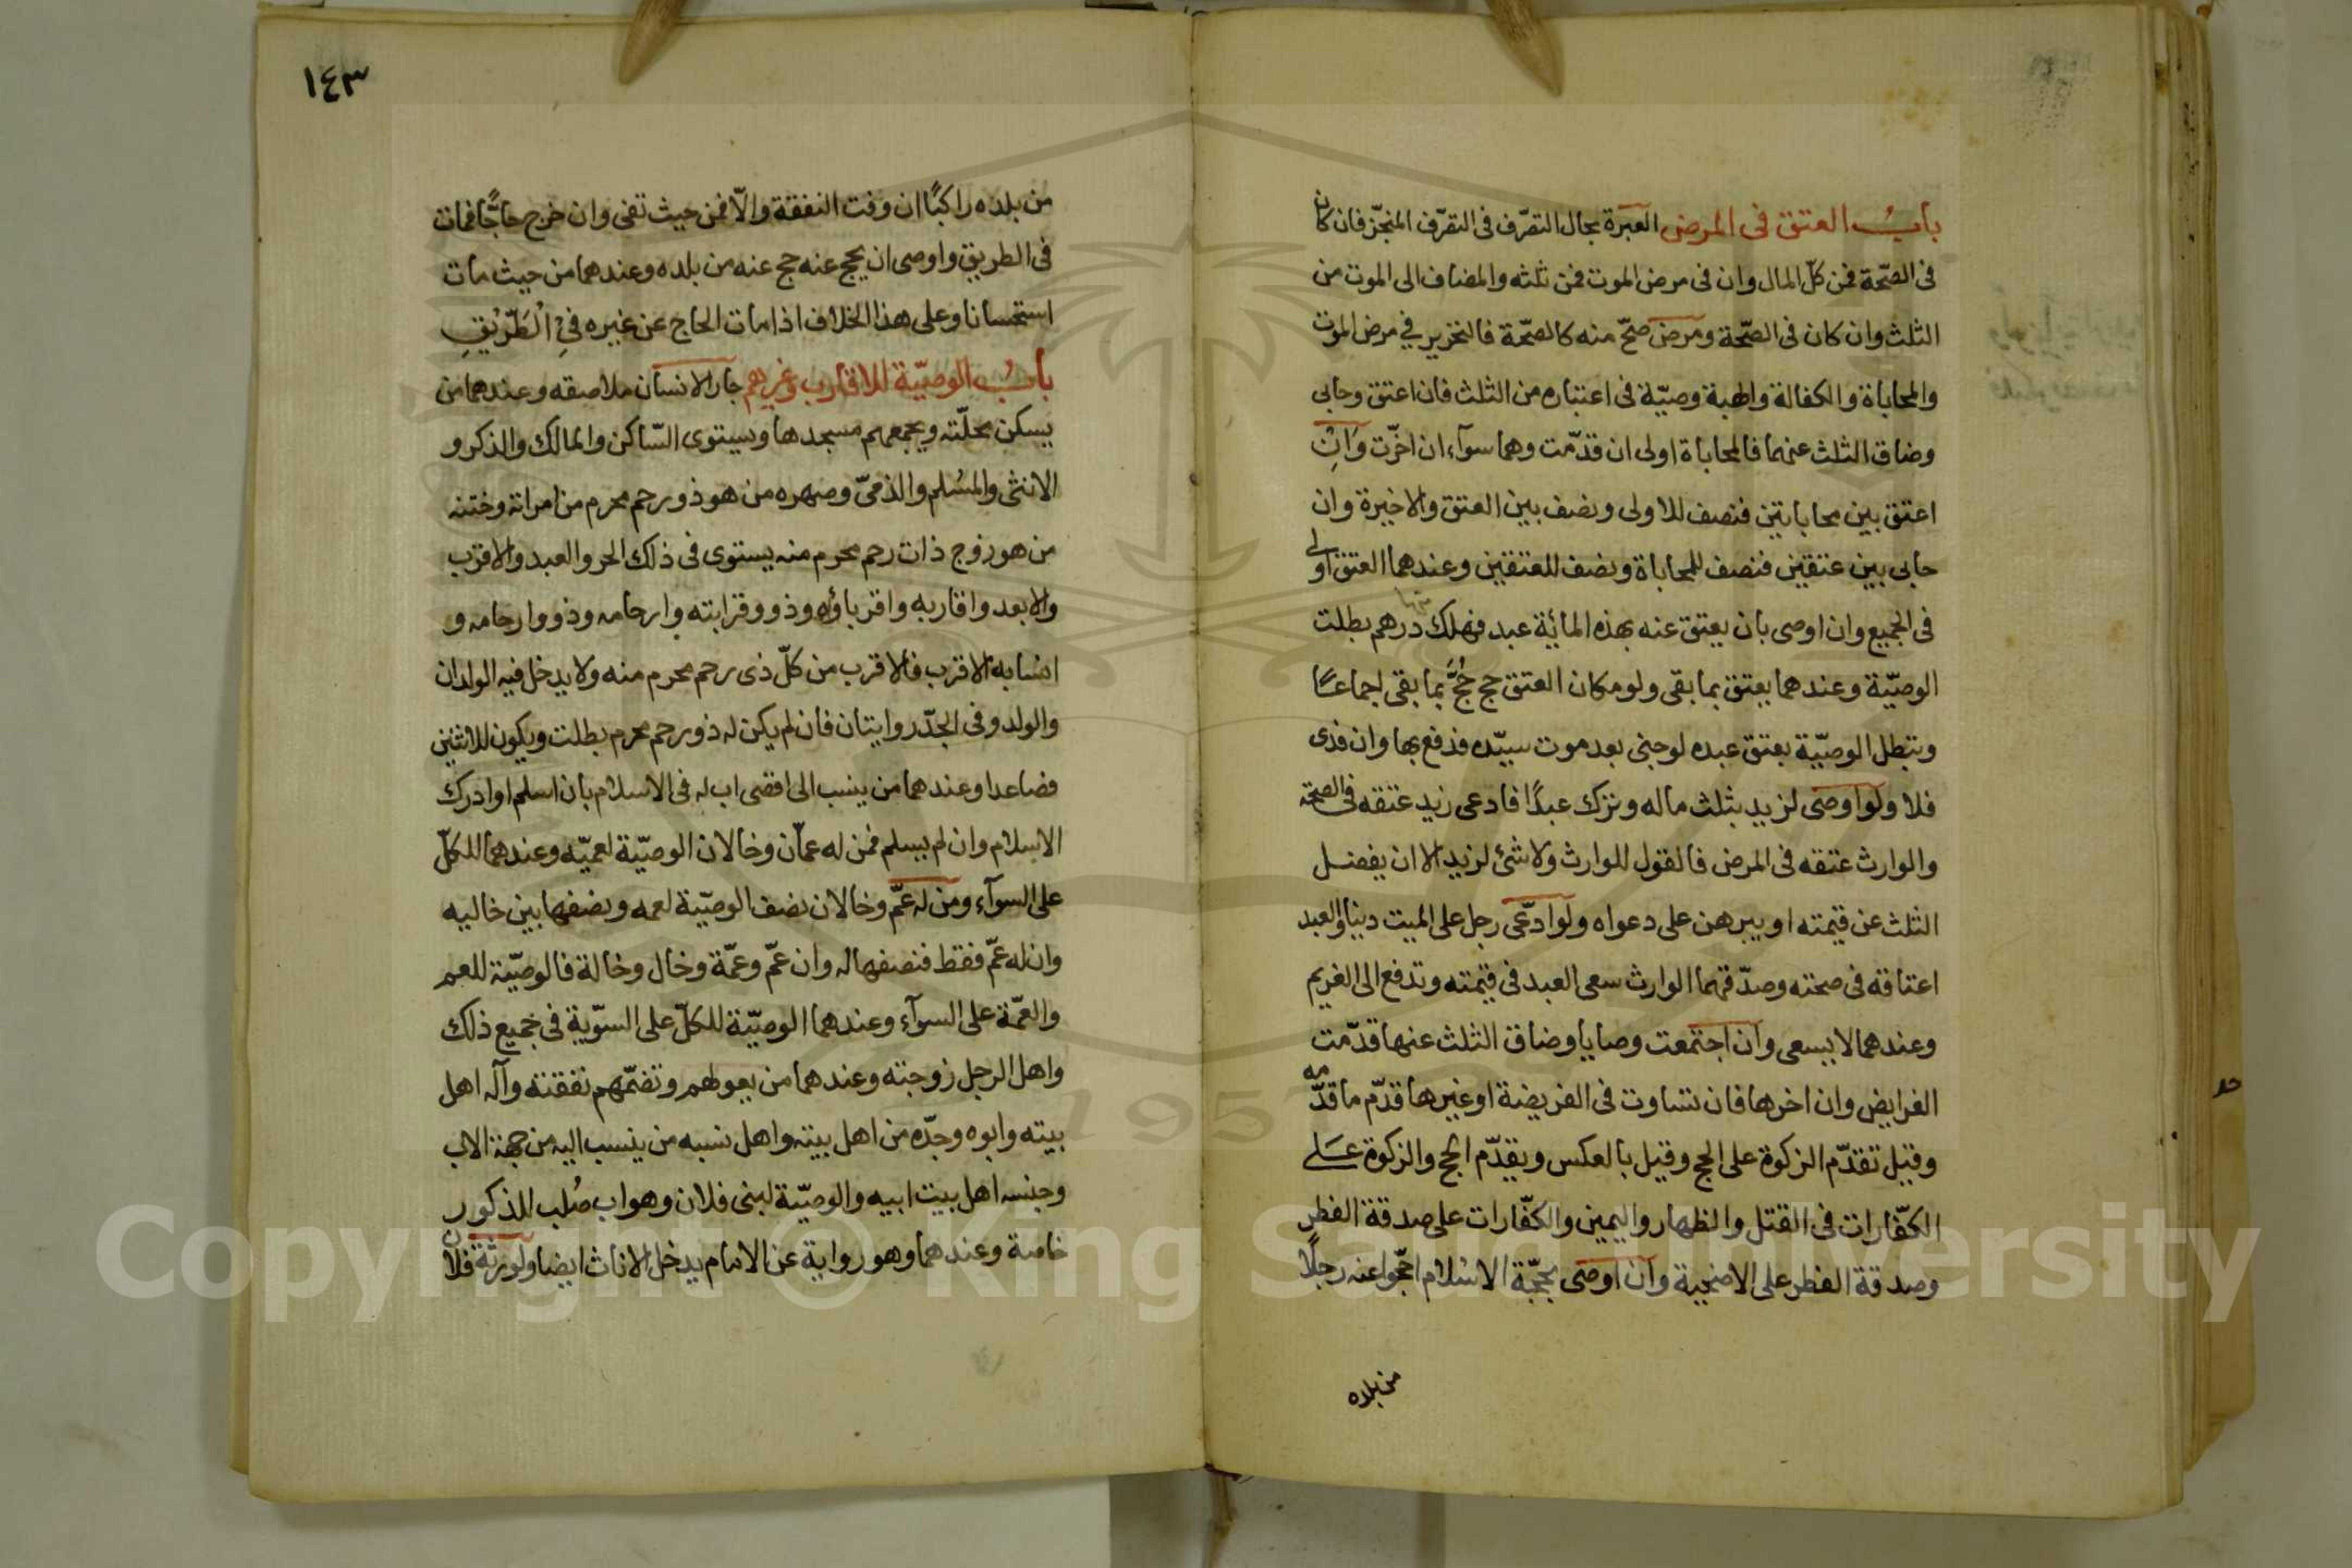 باب العتق فى المرض العبرة بحال التصرّف فى التصرّف المنجّز فان كان
فى الصّحّة فمن كلّ المال وان فى مرض الموت فمن ثلثه والمضاف الى الموت من
الثلث وان كان فى الصّحّة ومرض صحّ منه كالصّحّة فالتحرير في مرض الموت
والمحاباة والكفالة والهبة وصيّة فى اعتباره من الثلث فان اعتق وحابى
وضاق الثلث عنهما فالمحاباة اولى ان قدّمت وهما سوآء ان اخّرت وَانِ
اعتق بين محاباتين فنصف للاولى ونصف بين العتق والاخيرة وان
حابى بين عتقين فنصف للمحاباة ونصف للعتقين وعندهما العتق اولى
فى الجميع وان اوصى بان يعتق عنه بهذه المائة عبد فهلك منها درهم بطلت
الوصيّة وعندهما يعتق بما بقى ولو مكان العتق حج حُجَّ بما بقى اجماعًا
وتبطل الوصيّة بعتق عبده لو جنى بعد موت سيّده فدفع بها وان فدى
فلا ولو اوصى لزيد بثلث ماله وترك عبدًا فادعى زيد عتقه فى الصحّة
والوارث عتقه فى المرض فالقول للوارث ولا شئ لزيد الا ان يفضل
الثلث عن قيمته او يبرهن على دعواه ولو ادّعى رجل على الميت دينا والعبد
اعتاقه فى صحته وصدّقهما الوارث سعى العبد فى قيمته وتدفع الى الغريم
وعندهما لا يسعى وان اجتمعت وصايا وضاق الثلث عنها قدّمت
الفرايض وان اخرها فان تساوت فى الفريضة او غيرها قدّم ما قدّمه
وقيل تقدّم الزكوة على الحج وقيل بالعكس ويقدّم الحج والزكوة عَلى
الكفّارات فى القتل والظهار واليمين والكفّارات على صدقة الفطر
وصدقة الفطر على الاضحية وان اوصى بحجّة الاسلام احجّوا عنه رجلًا
من بلده
١٤٣
من بلده راكبًا ان وفت النفقة والّا فمن حيث تفى وان خرج حاجًّا فمات
فى الطريق واوصى ان يحج عنه حج عنه من بلده وعندهما من حيث مات
استحسانا وعلى هذا الخلاف اذا مات الحاج عن غيره فِي الْطَّرِيْقِ
بابُ الوصيّة للاقارب وغيرهم جار الانسان ملاصقه وعندهما من
يسكن محلّته ويجمعهم مسجدها ويستوى السّاكن والمالك والذكر و
الانثى والمسُلم والذمىّ وصهره من هو ذو رحم محرم من امراته وختنه
من هو زوج ذات رحم محرم منه يستوى فى ذلك الحر والعبد والاقرب
والابعد واقاربه واقرباؤه وذوو قرابته وارحامه وذووا ارحامه و
انسابه الاقرب فالاقرب من كلّ ذى رحم محرم منه ولا يدخل فيه الوالدان
والولد وفى الجدّ روايتان فان لم يكن له ذو رحم محرم بطلت ويكون للاثنين
فصاعدا وعندهما من ينسب الى اقصى اب له فى الاسلام بان اسلم او ادرك
الاسلام وان لم يسلم فمن له عمّان وخالان الوصيّة لعميّه وعندهما للكلّ
على السوآء ومن له عمّ وخالان نصف الوصيّة لعمه ونصفها بين خاليه
وان له عمّ فقط فنصفها له وان عمّ وعمّة وخال وخالة فالوصيّة للعم
والعمّة على السوآء وعندهما الوصيّة للكلّ على السوّية فى جميع ذلك
واهل الرجل زوجته وعندهما من يعولهم وتضمّهم نفقته وآله اهل
بيته وابوه وجدّه من اهل بيته واهل نسبه من ينسب اليه من جهة الاب
وجنسه اهل بيت ابيه والوصيّة لبنى فلان وهو اب صُلب للذكور
خاصة وعندهما وهو رواية عن الامام يدخل الاناث ايضا ولورثة فلان
Copyright © King Saud University
1957